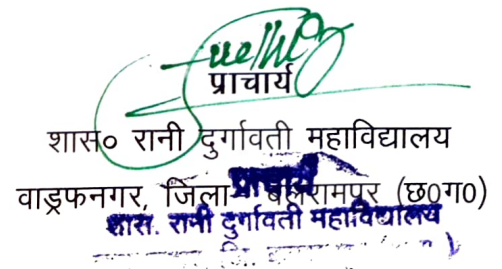 प्राचार्य
शास० रानी दुर्गावती महाविद्यालय
वाड्रफनगर, जिला- बलरामपुर (छ0ग0)
प्राचार्य
शास. रानी दुर्गावती महाविद्यालय